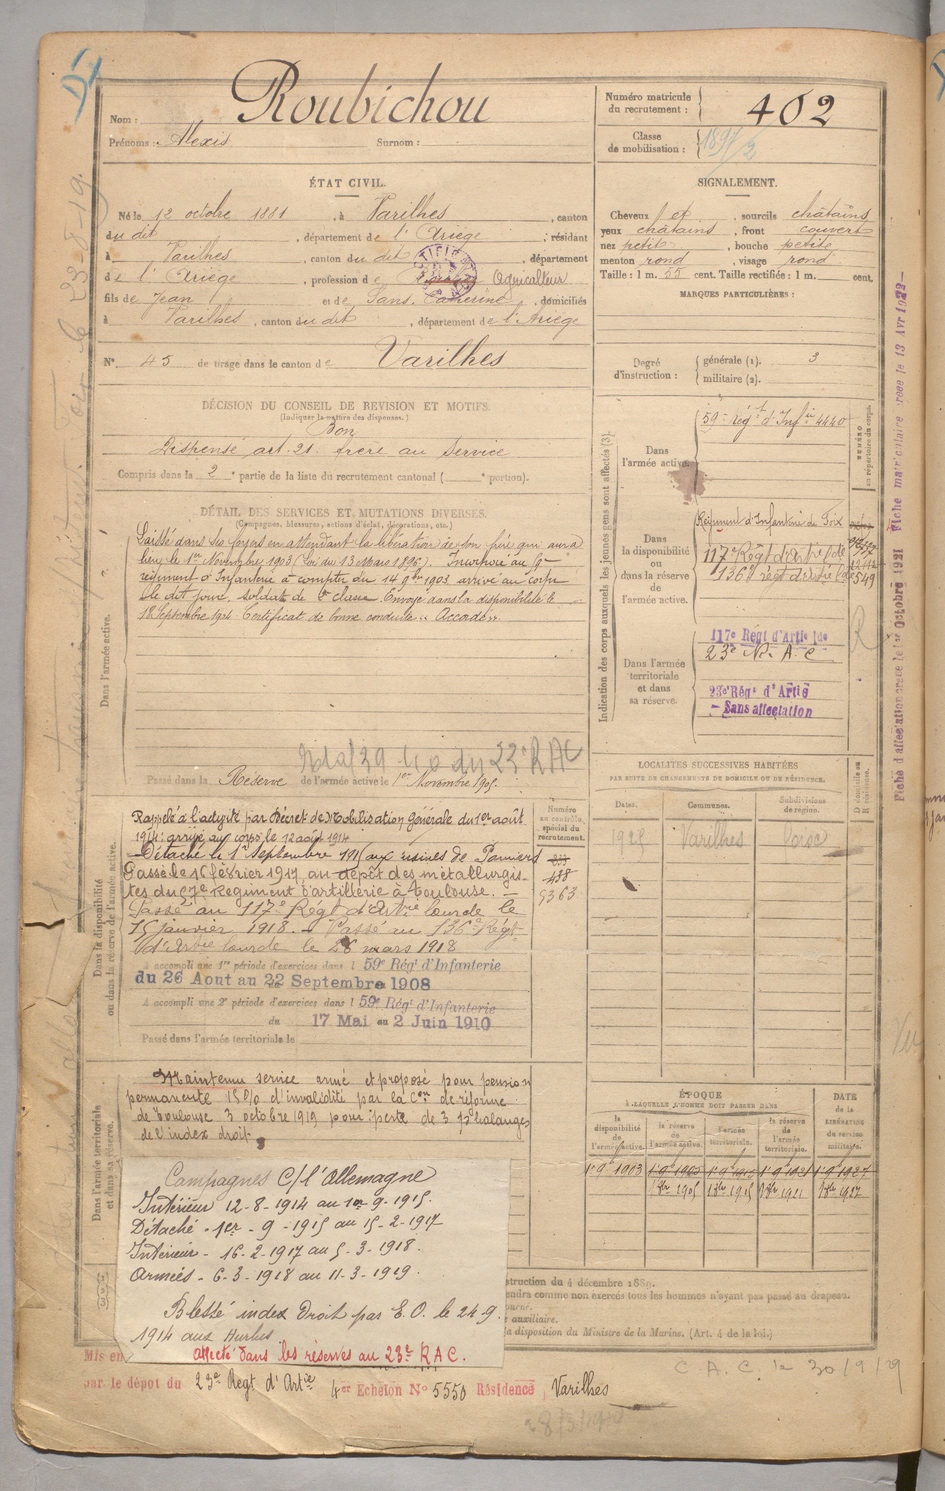 Nom : Roubichou
Prénoms : Alexis Surnom :
Numéro matricule du recrutement : 402
Classe de mobilisation :
ÉTAT CIVIL.
Né le 12 octobre 1881, à Varilhes, canton
du dit, département de l'Ariège, résidant
à Varilhes, canton du dit, département
de l'Ariège, profession de Agriculteur
fils de Jean et de Sans Catherine, domiciliés
à Varilhes, canton du dit, département de l'Ariège
N° 45 de tirage dans le canton de Varilhes
SIGNALEMENT.
Cheveux et, sourcils châtains
yeux châtains, front couvert
nez petit, bouche petite
menton rond, visage rond
Taille : 1 m. 55 cent. Taille rectifiée : 1 m. cent.
MARQUES PARTICULIÈRES :
Degré d'instruction : générale (1). 3
militaire (2).
DÉCISION DU CONSEIL DE REVISION ET MOTIFS.
(Indiquer la nature des dispenses.)
Bon
Dispensé art. 21. frère au Service
Compris dans la 2e partie de la liste du recrutement cantonal ( e portion).
DÉTAIL DES SERVICES ET MUTATIONS DIVERSES.
(Campagnes, blessures, actions d'éclat, décorations, etc.)
Laissé dans ses foyers en attendant la libération de son frère qui aura
lieu le 1er Novembre 1903 (Loi du 13 Mars 1896). Incorporé au
régiment d'Infanterie à compter du 14 9bre 1903 arrivé au corps
le dit jour, soldat de 2e classe. Envoyé dans la disponibilité le
18 Septembre 1904 Certificat de bonne conduite « Accordé »
Dans l'armée active.
Passé dans la Réserve de l'armée active le 1er Novembre 1905.
Indication des corps auxquels les jeunes gens sont affectés (3).
Dans l'armée active.
59e Régt d'Infie 4440
Dans la disponibilité ou dans la réserve de l'armée active.
Régiment d'Infanterie de Foix
117e Régt d'Artie Lde
136e régt d'artie Lde
Dans l'armée territoriale et dans sa réserve.
117e Régt d'Artie lde
23e R. A. C
23e Régt d'Artie
- Sans affectation
Fiche matriculaire 13 Avr 1922
LOCALITÉS SUCCESSIVES HABITÉES
PAR SUITE DE CHANGEMENTS DE DOMICILE OU DE RÉSIDENCE.
Dates. Communes. Subdivisions de région.
Varilhes
Dans la disponibilité ou dans la réserve de l'armée active.
Numéro au contrôle spécial du recrutement.
Rappelé à l'activité par Décret de Mobilisation Générale du 1er août
1914: arrivé au corps le 12 août 1914
Détaché le 1er Septembre 1915 aux usines de Pamiers
Passé le 16 février 1917, au dépôt des métallurgis-
tes du 57e Régiment d'artillerie à Toulouse.
Passé au 117e Régt d'Artie Lourde le
15 janvier 1918. Passé au 136e Régt
d'Artie Lourde le 28 mars 1918
A accompli une 1re période d'exercices dans l 59e Régt d'Infanterie
du 26 Aout au 22 Septembre 1908
A accompli une 2e période d'exercices dans l 59e Régt d'Infanterie
du 17 Mai au 2 Juin 1910
Passé dans l'armée territoriale le
Dans l'armée territoriale et dans sa réserve.
Maintenu service armé et proposé pour pension
permanente 15% d'invalidité par la Con de réforme
de Toulouse 3 octobre 1919 pour perte de 3 phalanges
de l'index droit
ÉPOQUE
À LAQUELLE L'HOMME DOIT PASSER DANS
la disponibilité de l'armée active. la réserve de l'armée active. l'armée territoriale. la réserve de l'armée territoriale.
DATE de la LIBÉRATION du service militaire.
Campagnes C/ l'Allemagne
Intérieur 12-8-1914 au 1er-9-1915.
Détaché - 1er-9-1915 au 15-2-1917
Intérieur - 16-2-1917 au 5-3-1918.
Armées - 6-3-1918 au 11-3-1919.
Blessé index Droit par E. O. le 24-9
1914 aux Hurlus
affecté dans les réserves au 23e R.A.C.
struction du 4 décembre 1889.
endra comme non exercés tous les hommes n'ayant pas passé au drapeau.
e auxiliaire.
la disposition du Ministre de la Marine. (Art. 4 de la loi.)
Mis en
par le dépot du 23e Régt d'Artie 4er Echelon N° 5550 Résidence Varilhes
C. A. C. le 30/9/29